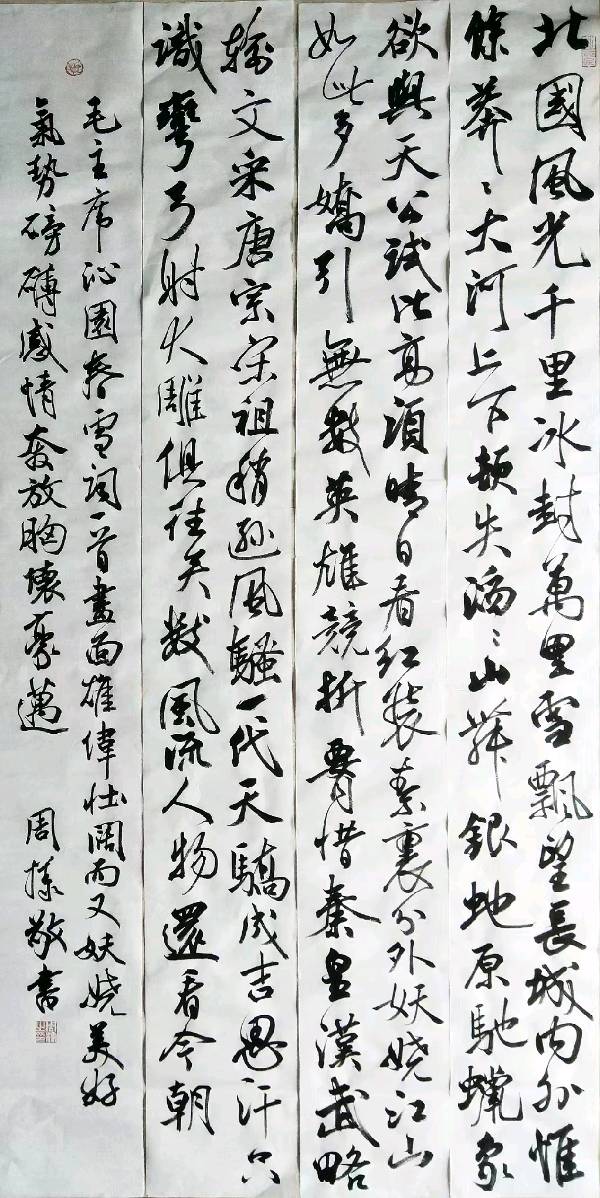 北國風光千里冰封萬里雪飄望長城内外惟
餘莽〻大河上下頓失滔〻山舞銀蛇原馳蠟象
欲與天公試比高須晴日看紅裝素裹分外妖娆江山
如此多嬌引無數英雄競折腰惜秦皇漢武略
輸文采唐宗宋祖稍遜風騷一代天驕成吉思汗只
識彎弓射大雕俱往矣數風流人物還看今朝
毛主席沁園春雪詞一首畫面雄偉壯闊而又妖娆美好
氣勢磅礴感情奔放胸懷豪邁
周 敬書